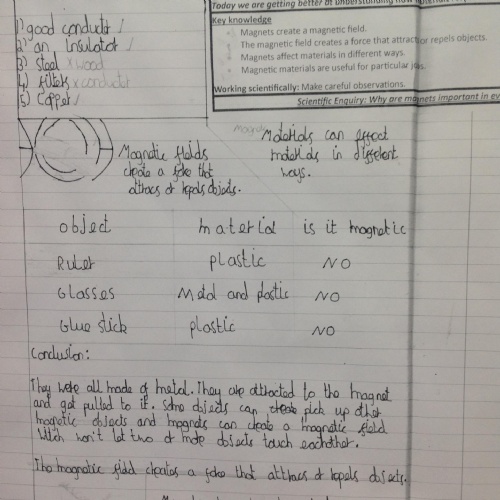 Today we are getting better at understanding how
Key knowledge
Magnets create a magnetic field.
The magnetic field creates a force that attract or repels objects.
Magnets affect materials in different ways.
Magnetic materials are useful for particular jobs.
Working scientifically: Make careful observations.
Scientific Enquiry: Why are magnets important in
1) good conductor
2) an insulator
3) steel x wood
4) x conductor
5) Copper
Magnetic fields
create a foke that
attracs or repels objects.
Materials can effect
materials in different
ways.
object material is it magnetic
Ruler plastic NO
Glasses Metal and plastic NO
Glue stick plastic NO
Conclusion:
They were all made of metal. They are attracted to the magnet
and got pulled to it. Some objects can pick up other
magnetic objects and magnets can create a magnetic field
witch won't let two or more objects touch eachother.
The magnetic field creates a foke that attracs or repels objects.